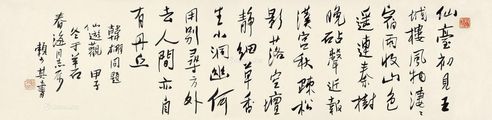 仙臺初見五
城樓風物凄凄
宿雨收山色
遥連秦樹
晚砧聲近報
漢宫秋疎松
影落空壇
静細草香
生小洞幽何
用别尋方外
去人間亦自
有丹丘
韓翃同題
仙遊觀 甲子
冬于羊石
春海同志
賴少其書